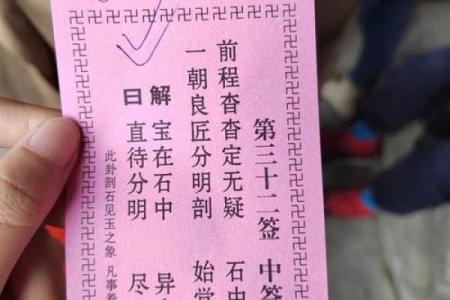 第三十二签 中签
前程杳杳定无疑 石中
一朝良匠分明剖 始觉
解曰 宝在石中 异
直待分明 尽
此卦剖石见玉之象 凡事